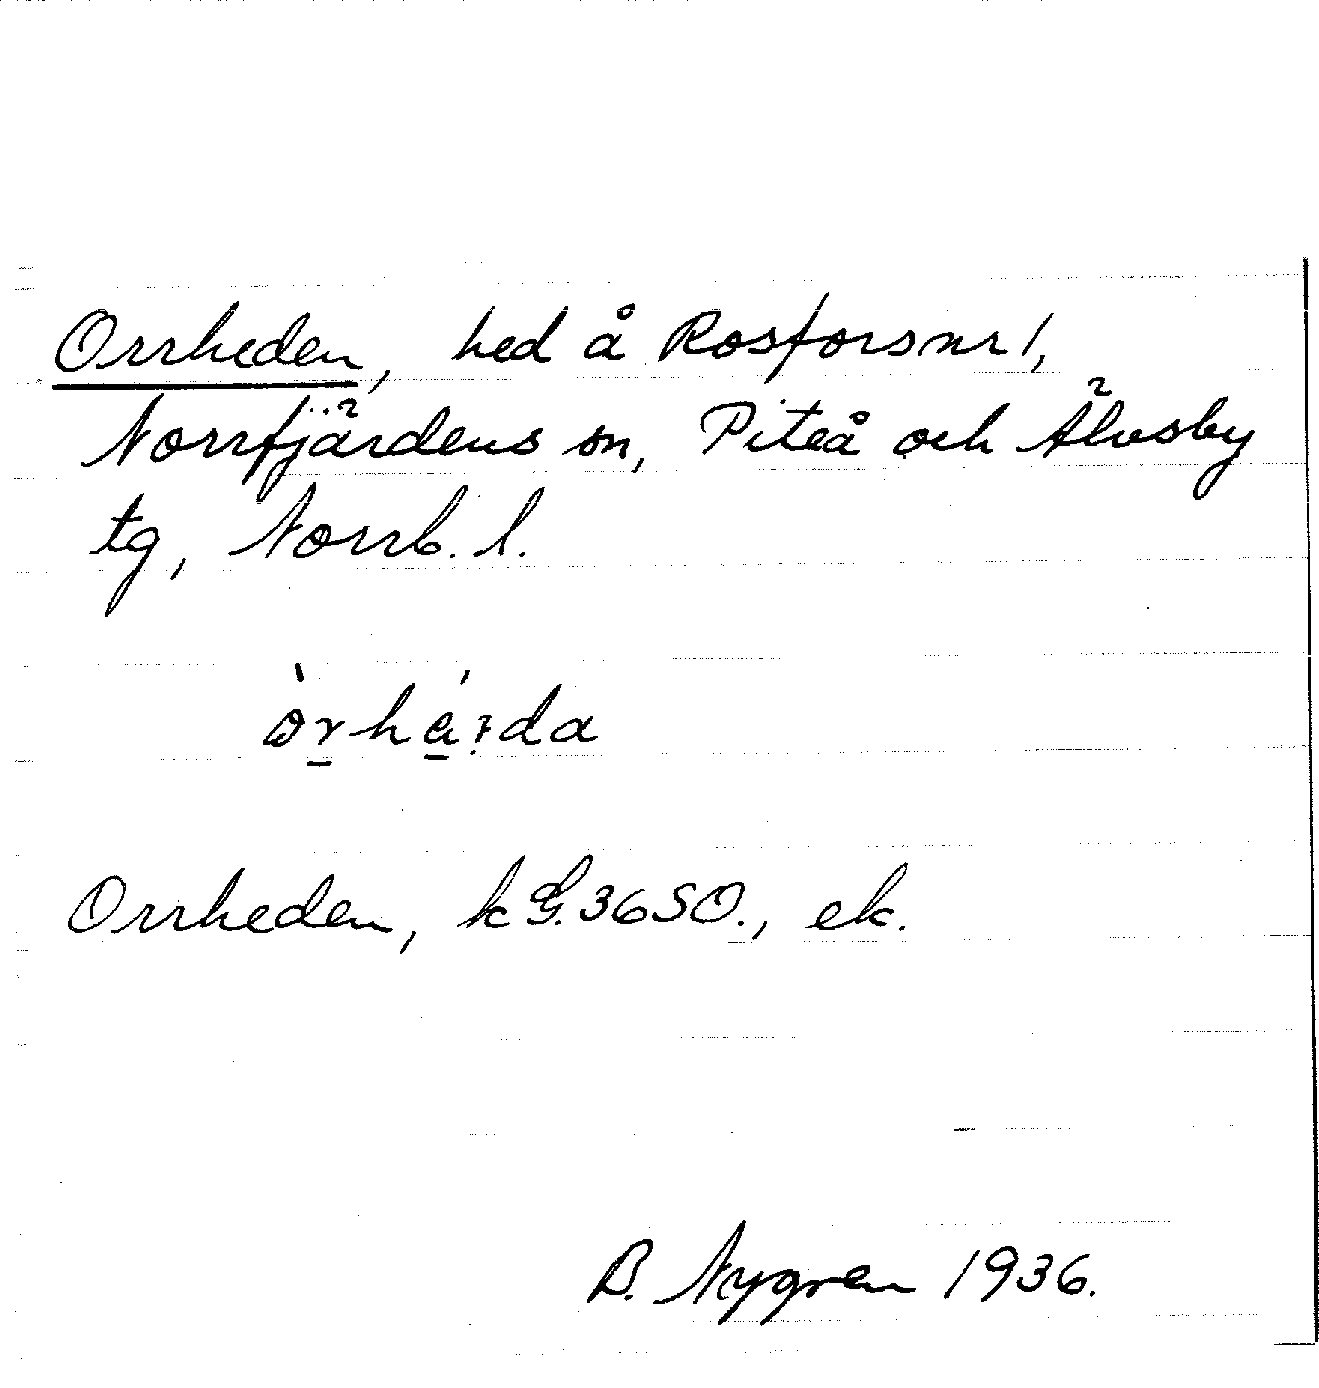 Orrheden, hed å Rosforsnr 1,
Norrfjärdens sn, Piteå och Älvsby
tg, Norrb. l.
òrhá:da
Orrheden, k G. 36 SO., ek.
B. Nygren 1936.